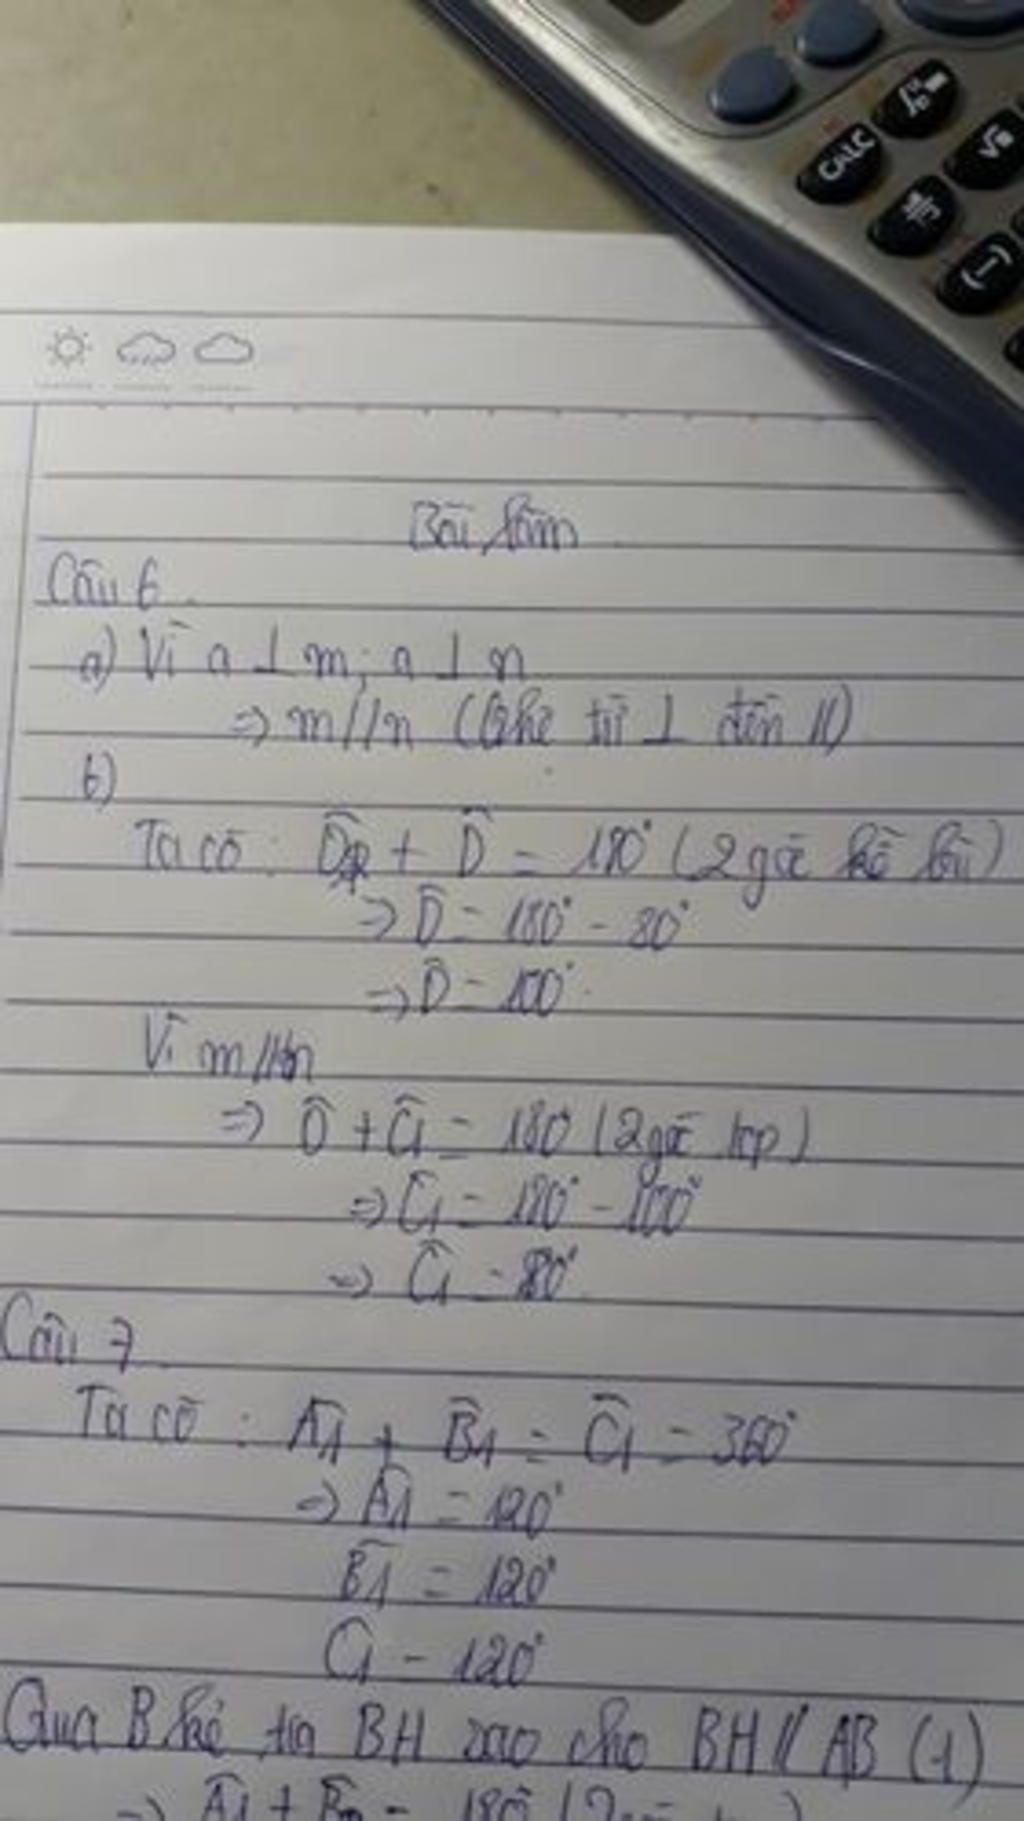 CALC
(−)
Bài làm
Câu 6
a) Vì a ⊥ m; a ⊥ n
=> m//n (Qhệ từ ⊥ đến //)
b)
Ta có: D̂2 + D̂ = 180° (2 góc kề bù)
=> D̂ = 180° - 80°
=> D̂ = 100°
Vì m//n
=> D̂ + Ĉ1 = 180 (2 góc tcp)
=> Ĉ1 = 180° - 100°
=> Ĉ1 = 80°
Câu 7
Ta có: Â1 + B̂1 = Ĉ1 = 360°
=> Â1 = 120°
B̂1 = 120°
Ĉ1 = 120°
Qua B kẻ tia BH sao cho BH // AB (1)
=> Â1 + B̂2 = 180° (2 góc